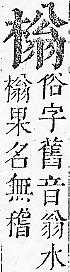 㮬
俗字舊音翁水
㮬果名無稽